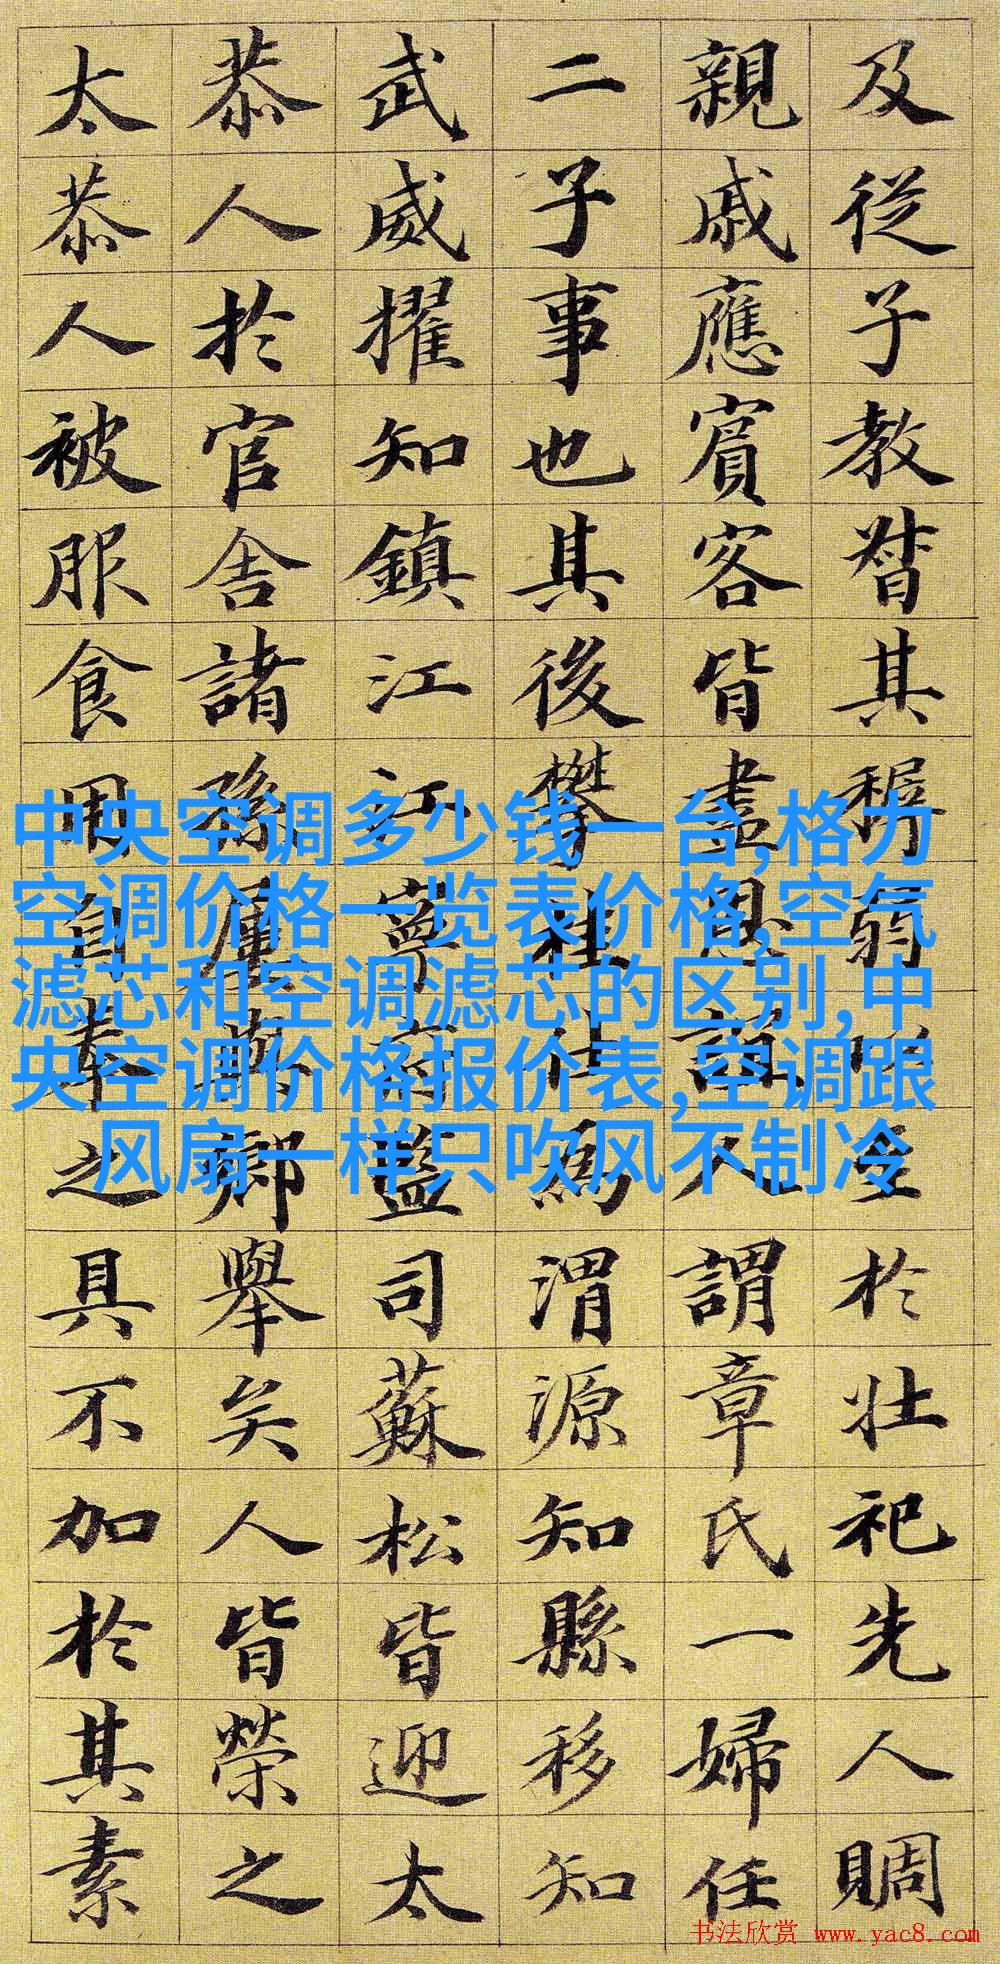 及從子教督其稺弱以至於壯祀先人賙
親戚應賓客皆盡恩誼人謂章氏一婦任
二子事也其後攀桂仕為渭源知縣移知
武威擢知鎮江江寧監司蘇松皆迎太
恭人於官舍諸孫屢薦鄉舉矣人皆榮之
太恭人被服食用自奉之具不加於其素
中央空调多少钱一台,格力
空调价格一览表价格,空气
滤芯和空调滤芯的区别,中
央空调价格报价表,空调跟
风扇一样只吹风不制冷
书法欣赏 www.yac8.com